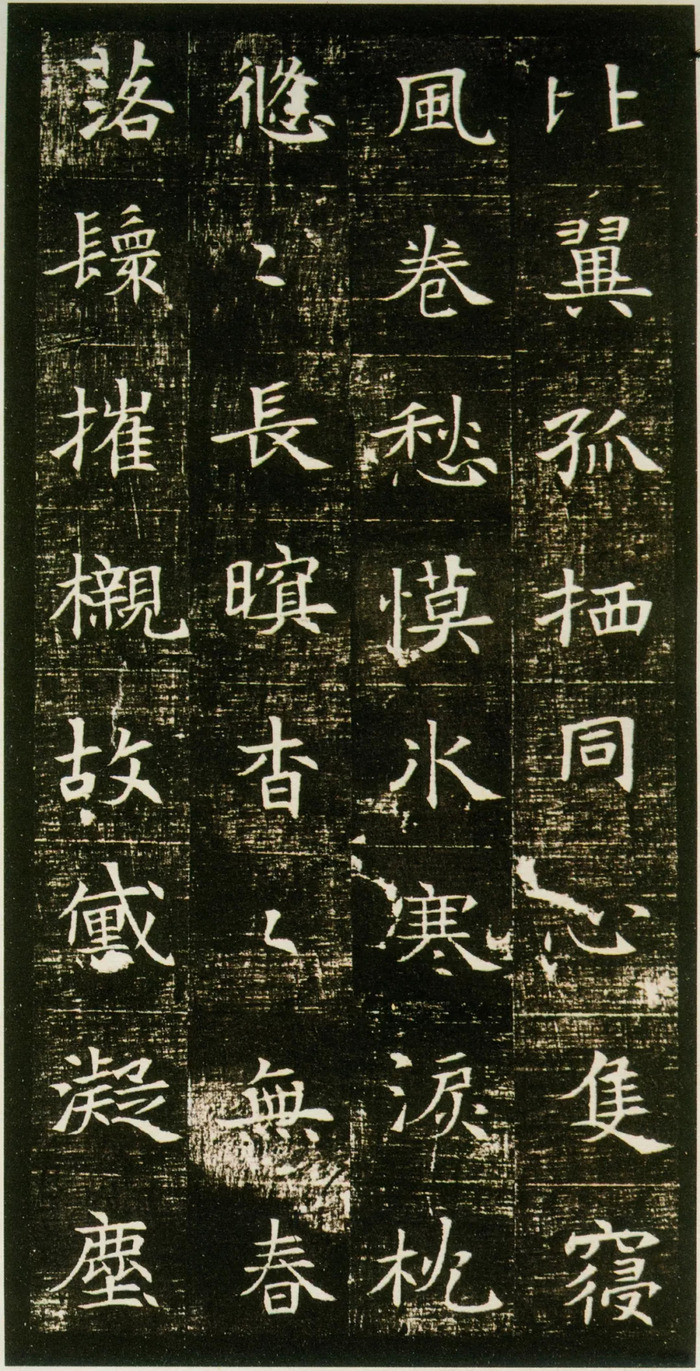 比翼孤栖同心隻寢
風卷愁慔冰寒淚枕
悠〻長暝杳〻無春
落鬟摧櫬故黛凝塵